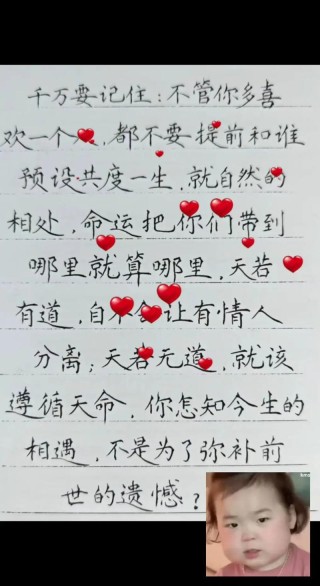 千万要记住:不管你多喜
欢一个人,都不要提前和谁
预设共度一生,就自然的
相处,命运把你们带到
哪里就算哪里,天若
有道,自不会让有情人
分离;天若无道,就该
遵循天命,你怎知今生的
相遇,不是为了弥补前
世的遗憾?